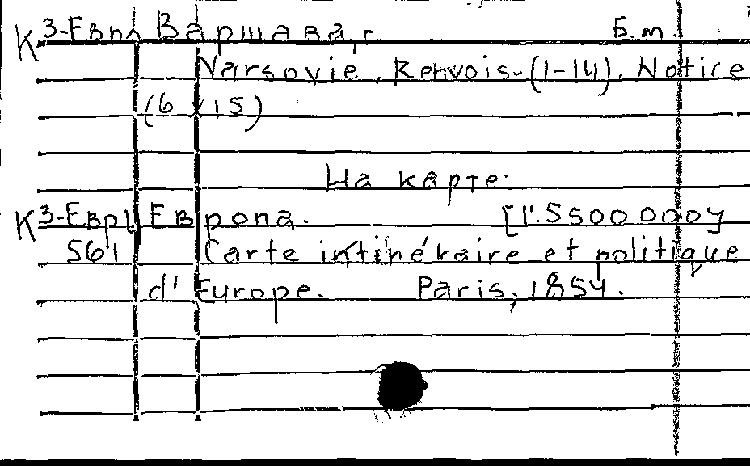 К 3-Евр Варшава, г. Б.м.
Varsovie. Renvois (1-14). Notice
(6 x 15)
На карте:
К 3-Евр Европа. [1:5500000]
561 Carte intinéraire et politique
d'Europe. Paris, 1854.